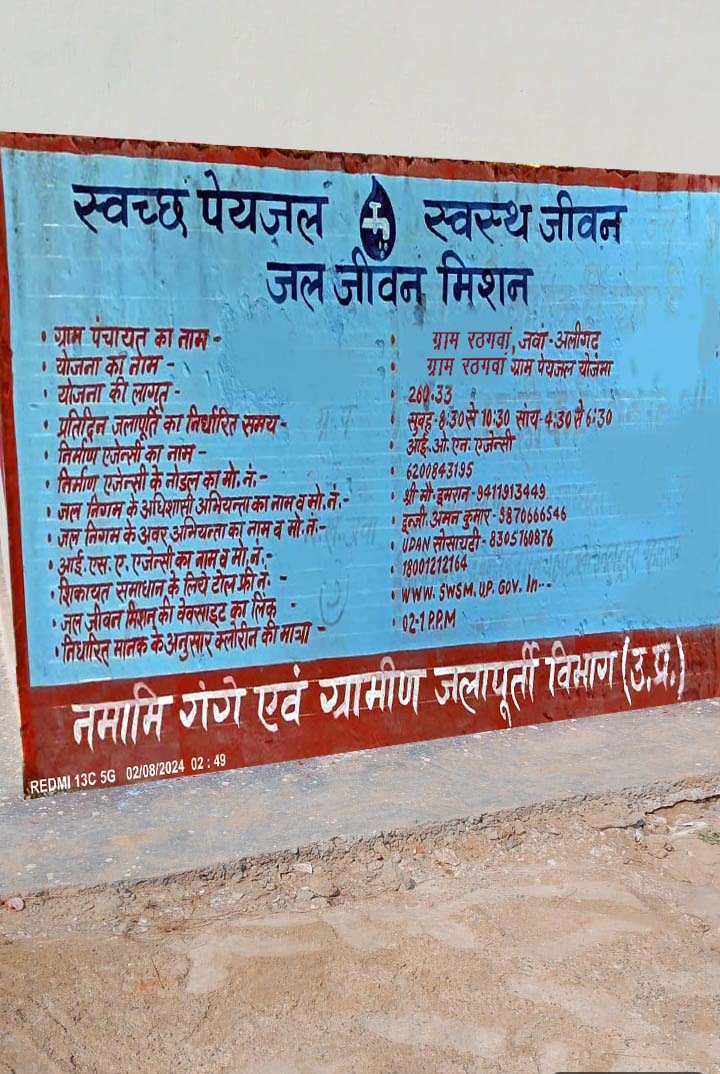 स्वच्छ पेयजल स्वस्थ जीवन
जल जीवन मिशन
• ग्राम पंचायत का नाम - • ग्राम रठगवां, जवां-अलीगढ़
• योजना का नाम - • ग्राम रठगवां ग्राम पेयजल योजना
• योजना की लागत - • 260.33
• प्रतिदिन जलापूर्ति का निर्धारित समय - • सुबह-8:30 से 10:30 सांय-4:30 से 6:30
• निर्माण एजेन्सी का नाम - • आई.ओ.एन. एजेन्सी
• निर्माण एजेन्सी के नोडल का मो. नं.- • 6200843195
• जल निगम के अधिशासी अभियन्ता का नाम व मो.नं.- • श्री मौ. इमरान-9411913449
• जल निगम के अवर अभियन्ता का नाम व मो.नं.- • इन्जी. अमन कुमार-9870666546
• आई.एस.ए. एजेन्सी का नाम व मो.नं.- • UDAN सोसायटी-8305760876
• शिकायत समाधान के लिये टोल फ्री नं.- • 18001212164
• जल जीवन मिशन की वेबसाइट का लिंक - • WWW.SWSM.UP.GOV.In--
• निर्धारित मानक के अनुसार क्लोरीन की मात्रा - • 02-1 P.P.M
नमामि गंगे एवं ग्रामीण जलापूर्ती विभाग (उ.प्र.)
REDMI 13C 5G 02/08/2024 02:49